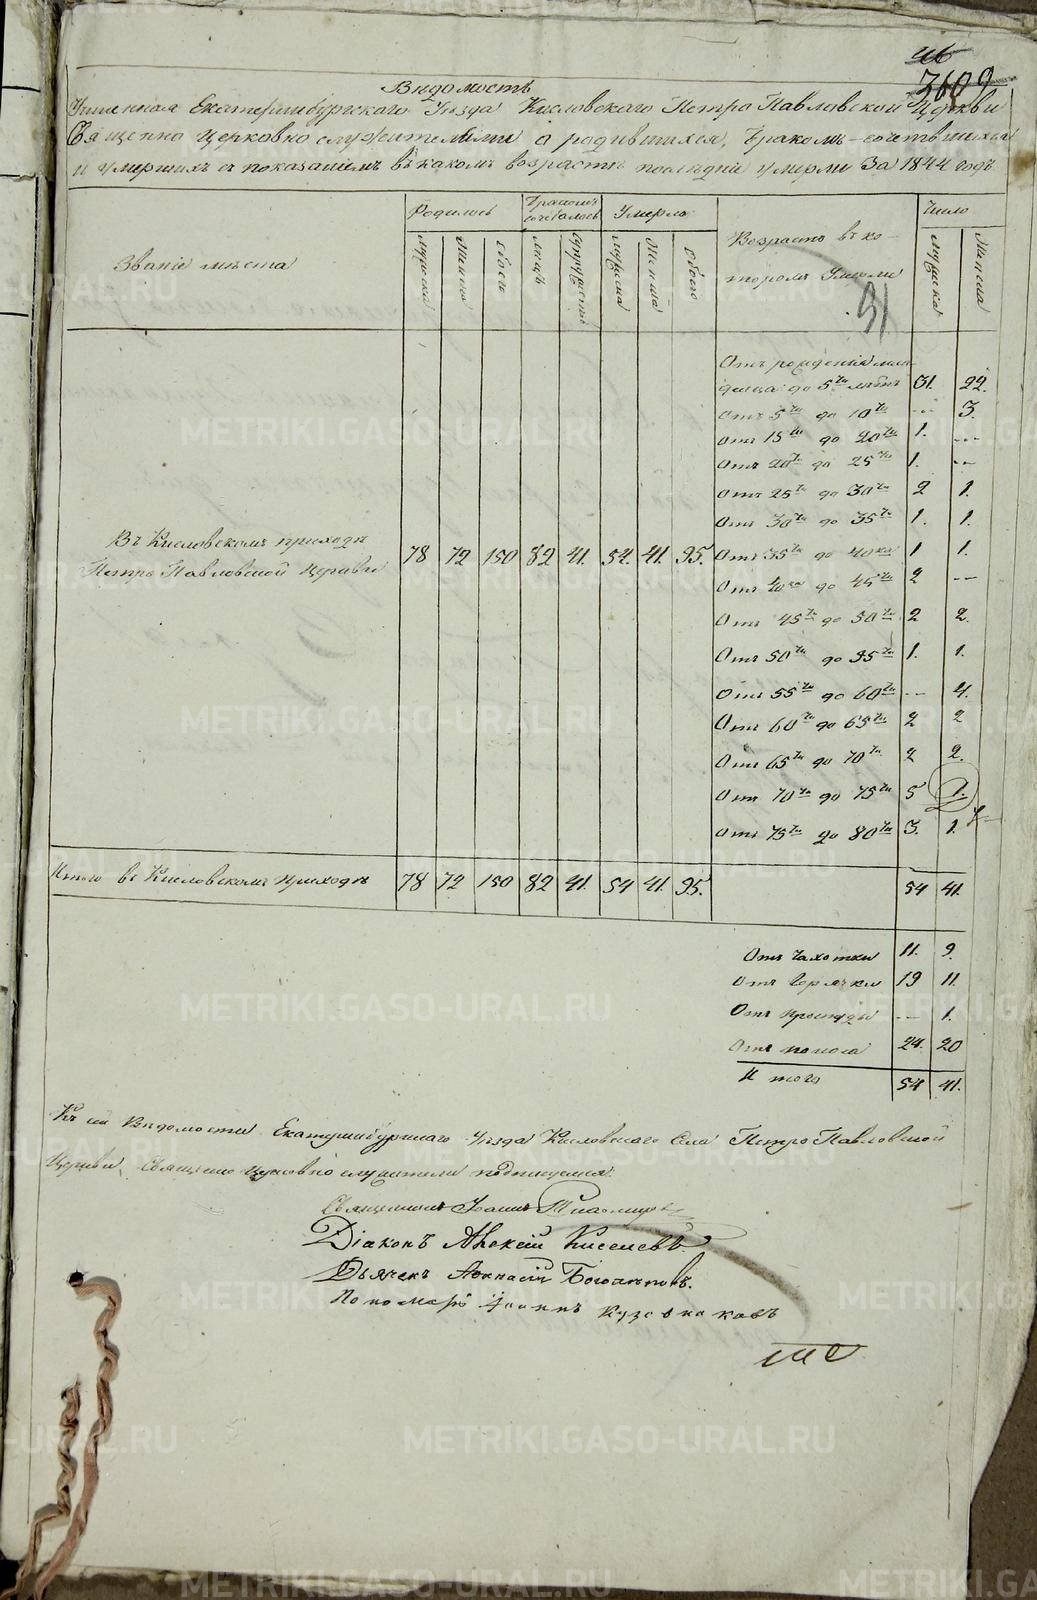 46
3609
Вѣдомость
Учиненная Екатеринбургскаго Уѣзда Кисловскаго Петро Павловской Церкви
Священно Церковно служителями о родившихся, Бракомъ-сочетавшихся
и умершихъ съ показаніемъ въ какомъ возрастѣ послѣдніе умерли За 1844 годъ
Званіе мѣста
Родилось
Мужеска
Женска
Обоего
Бракомъ сочеталось
Лицъ
Супружествъ
Умерло
Мужеска
Женска
Обоего
Возрастъ въ ко-
торомъ Умерли
91
Число
Мужеска
Женска
Отъ рожденія мла-
денца до 5ти лѣтъ 31. 22.
Отъ 5ти до 10ти -- 3.
Отъ 15ти до 20ти 1. ---
Отъ 20ти до 25ти 1. --
Отъ 25ти до 30ти 2 1.
Отъ 30ти до 35ти 1. 1.
Въ Кисловскомъ приходѣ
Петро Павловской Церкви 78 72 150 82 41. 54. 41. 95.
Отъ 35ти до 40ка 1 1.
Отъ 40ка до 45ти 2 --
Отъ 45ти до 50ти 2 2.
Отъ 50ти до 55ти 1. 1.
Отъ 55ти до 60ти -- 4.
Отъ 60ти до 65ти 2 2
Отъ 65ти до 70ти 2 2.
Отъ 70ти до 75ти 5 1.
Отъ 75ти до 80ти 3. 1.
Итого въ Кисловскомъ приходѣ 78 72 150 82 41. 54 41. 95. 54 41.
Отъ Чахотки 11. 9.
Отъ Горячки 19 11.
Отъ простуды -- 1.
Отъ поноса 24. 20
Итого 54 41.
Къ сей Вѣдомости Екатеринбургскаго Уѣзда Кисловскаго Села Петро Павловской
Церкви, Священно церковно служители подписуемся
Священникъ Іоаннъ
Діаконъ Алексій Киселевъ
Дьячекъ Аѳанасій
Пономарь Іоаннъ Кузовниковъ
METRIKI.GASO-URAL.RU